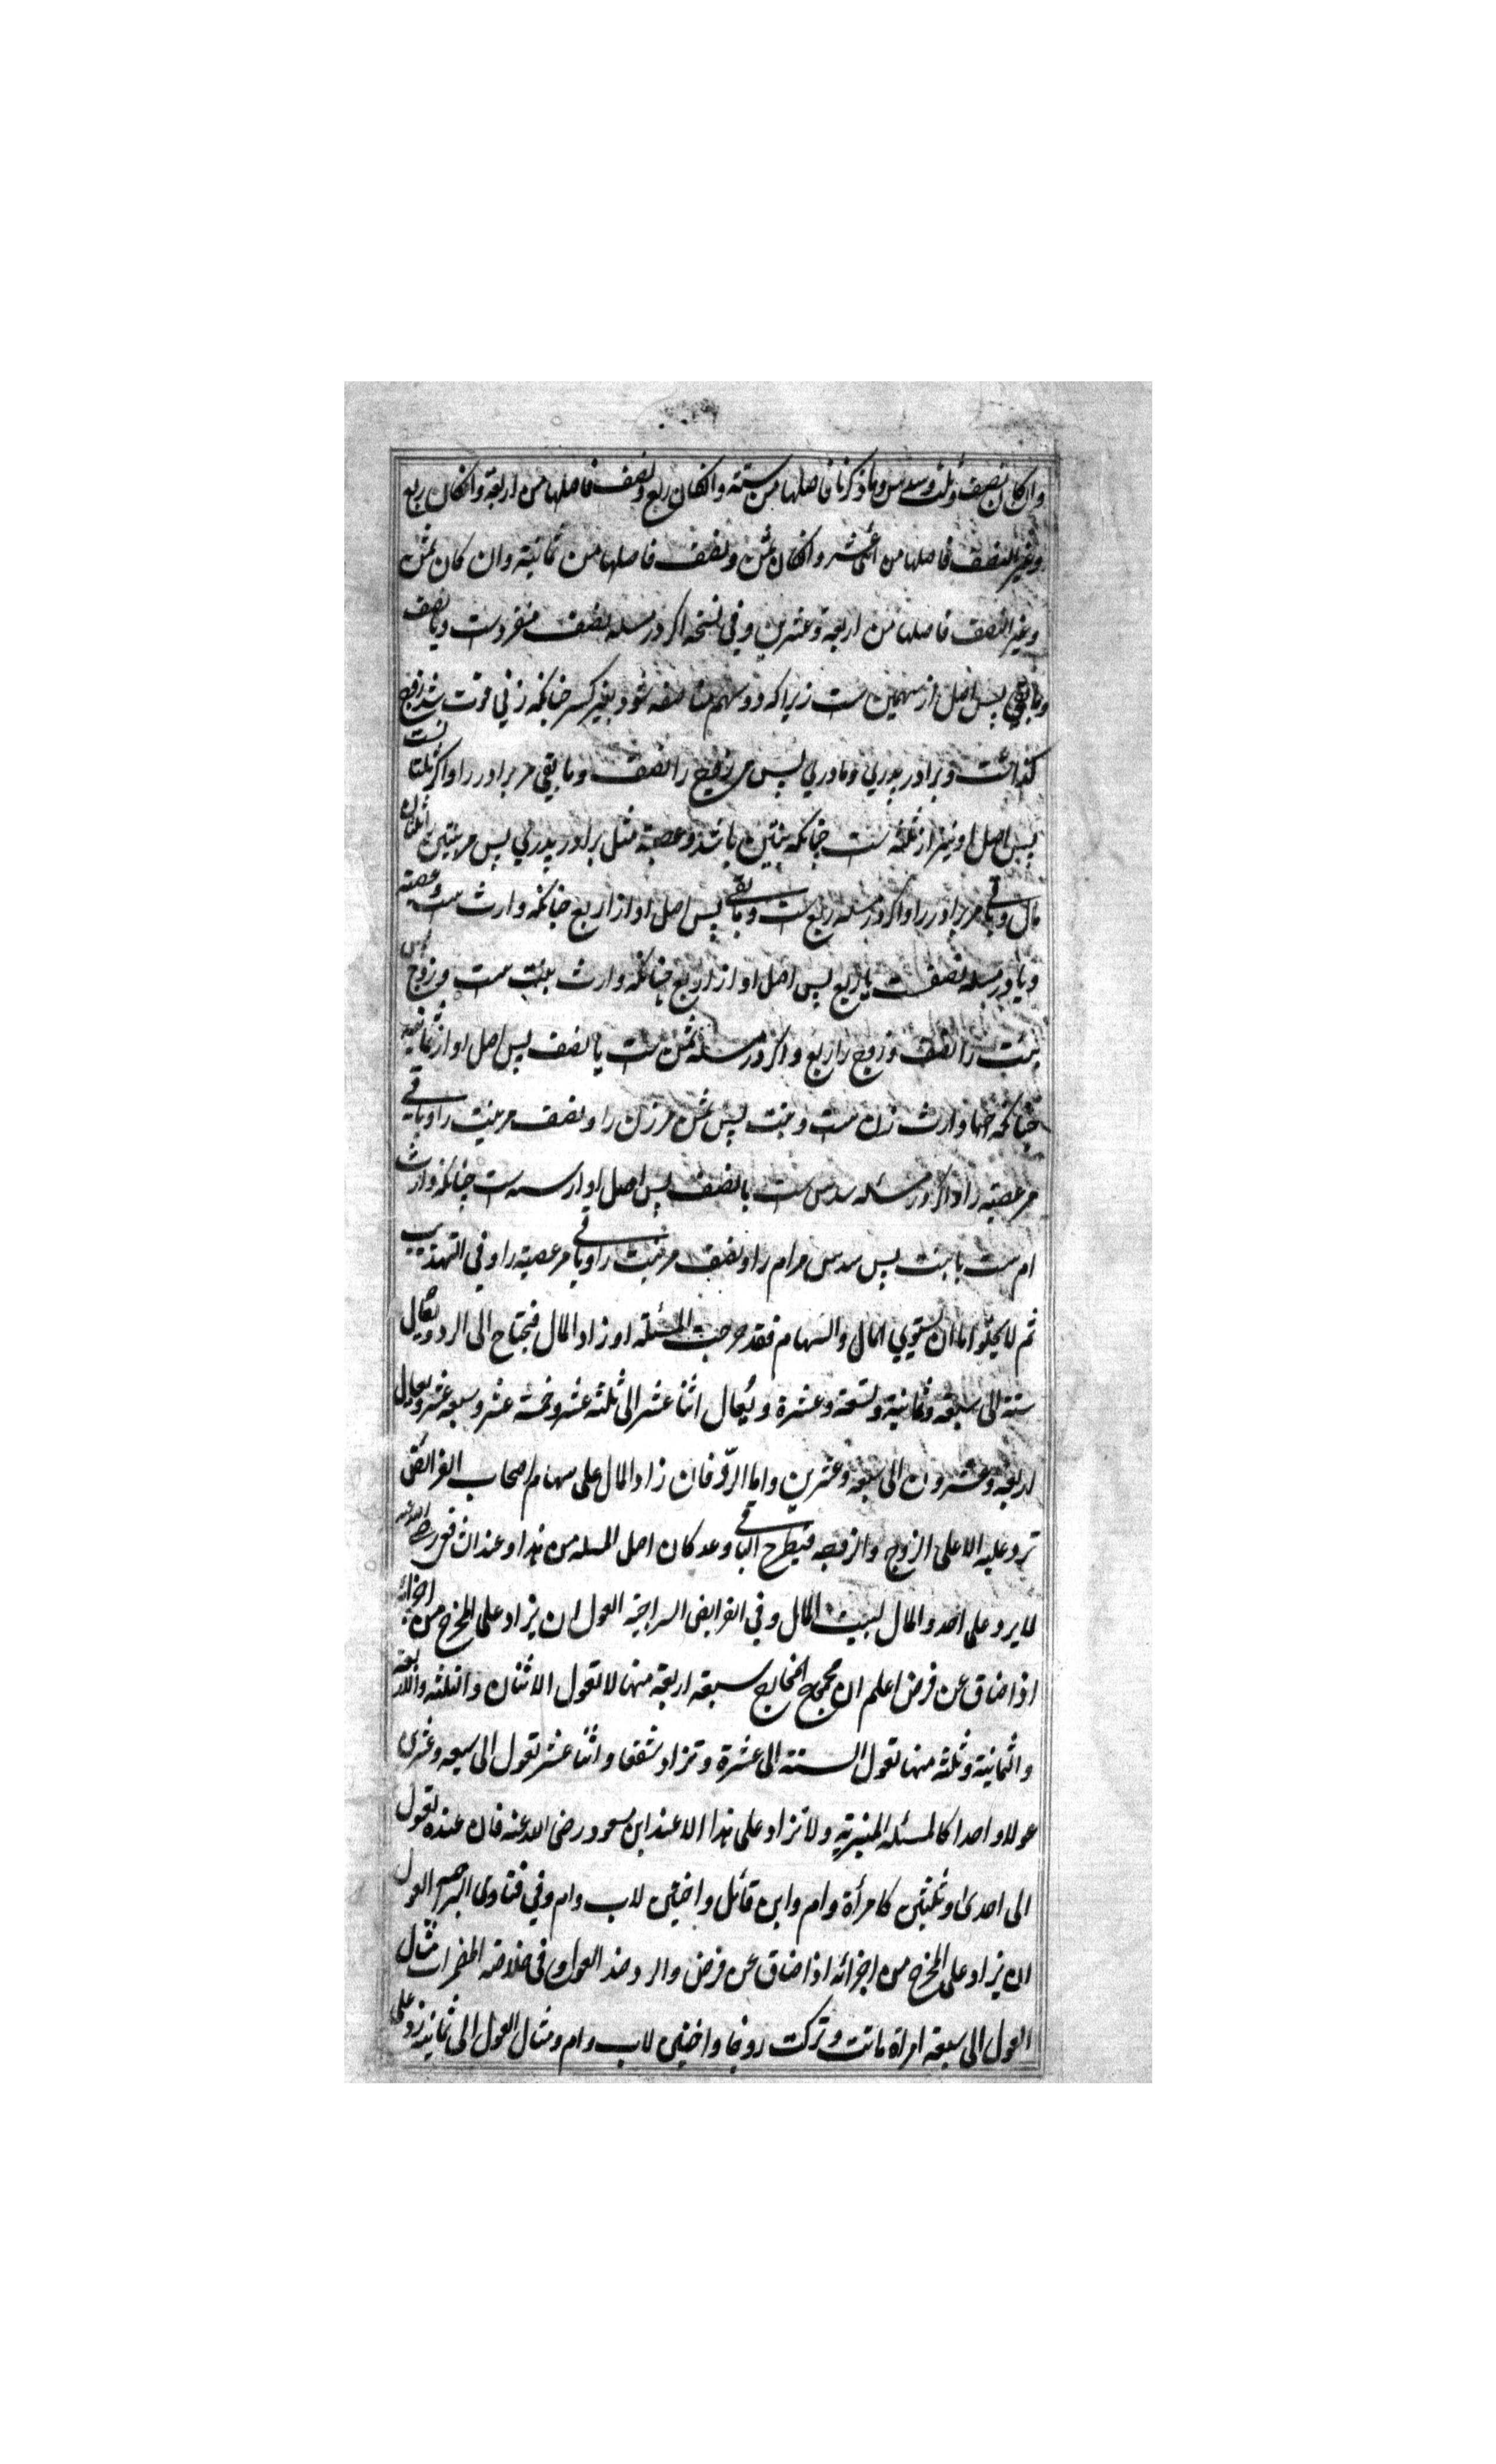 وان کان نصف وثلث وسدس وما ذکرنا فاصلها من ستة وانکان ربع ونصف فاصلها من اربعة وانکان ربع
وغیر النصف فاصلها من اثنی عشر وانکان ثمن ونصف فاصلها من ثمانیة وان کان ثمن
وغیر النصف فاصلها من اربعة وعشرین وفی نسخه اکر در مسله نصف منفردست ویا نصف
وما بقی پس اصل از سهمین ست زیراکه دو سهم مناصفه شود بغیر کسر چنانکه زنی فوت شد زوج
کذاشت وبرادر پدری ومادری پس مر زوج را نصف وما بقی مر برادر را واکر ثلثا نست
پس اصل او نیز از ثلثه ست چنانکه بنتین باشد وعصبة مثل برادر پدری پس مر بنتین را ثلثان
مال وباقی مر برادر را واکر در مسله ربع ست وباقی پس اصل او از اربع چنانکه وارث ست وعصبه
ویا در مسله نصفست یا ربع پس اصل او از اربع چنانکه وارث بنت ست وزوج پس
بنت را نصف وزوج را ربع واکر در مسله ثمن ست یا نصف پس اصل او از ثمانیه
چنانکه وارث زن ست وبنت پس ثمن مر زن را ونصف مر بنت را وباقی
مر عصبه را واکر در مسئله سدس ست یا نصف پس اصل او از سته ست چنانکه وارث
ام ست یا بنت پس سدس مر ام را ونصف مر بنت را وباقی مر عصبه را وفی التهذیب
ثم لا یخلو اما ان یستوی المال والسهام فقد خرجت المسئلة او زاد المال فیحتاج الی الرد ویعال
ستة الی سبعة وثمانیة وتسعة وعشرة ویُعال اثنا عشر الی ثلثة عشر وخمسة عشر وسبعة عشر ویعال
اربعة وعشرون الی سبعة وعشرین واما الردّ فان زاد المال علی سهام اصحاب الفرائض
ترد علیه الا علی الزوج والزوجه فیطرح الباقی وعد کان اصل المسله من هذا وعند الشافعی رضی الله عنه
لا یرد علی احد والمال لبیت المال وفی الفرایض السراجیة العول ان یزاد علی المخرج من اجزائه
اذا ضاق عن فرض اعلم ان مجموع المخارج سبعة اربعة منها لا تعول الاثنان والثلثه والاربعه
والثمانیة وثلثه منها تعول الستة الی عشرة وتزاد شفعا واثنا عشر تعول الی سبعه وعشری
عولا واحدا کالمسئله المنبریة ولا تزاد علی هذا الا عند ابن مسعود رضی الله عنه فان عنده تعول
الی احدی وثلثین کامرأة وام وابن قاتل واختین لاب وام وفی فتاوی العول
ان یزاد علی المخرج من اجزائه اذا ضاق عن فرض والرد ضد العول وفی خلاصه المضمرات مثال
العول الی سبعة امراة ماتت وترکت زوجا واختین لاب وام ومثال العول الی ثمانیة زوج